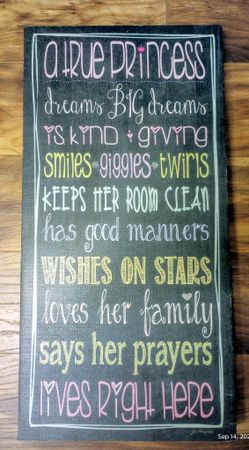 a true princess
dreams BIG dreams
is kind + giving
smiles giggles twirls
KEEPS HER ROOM CLEAN
has good manners
WISHES ON STARS
loves her family
says her prayers
lives right here
Sep 14, 202